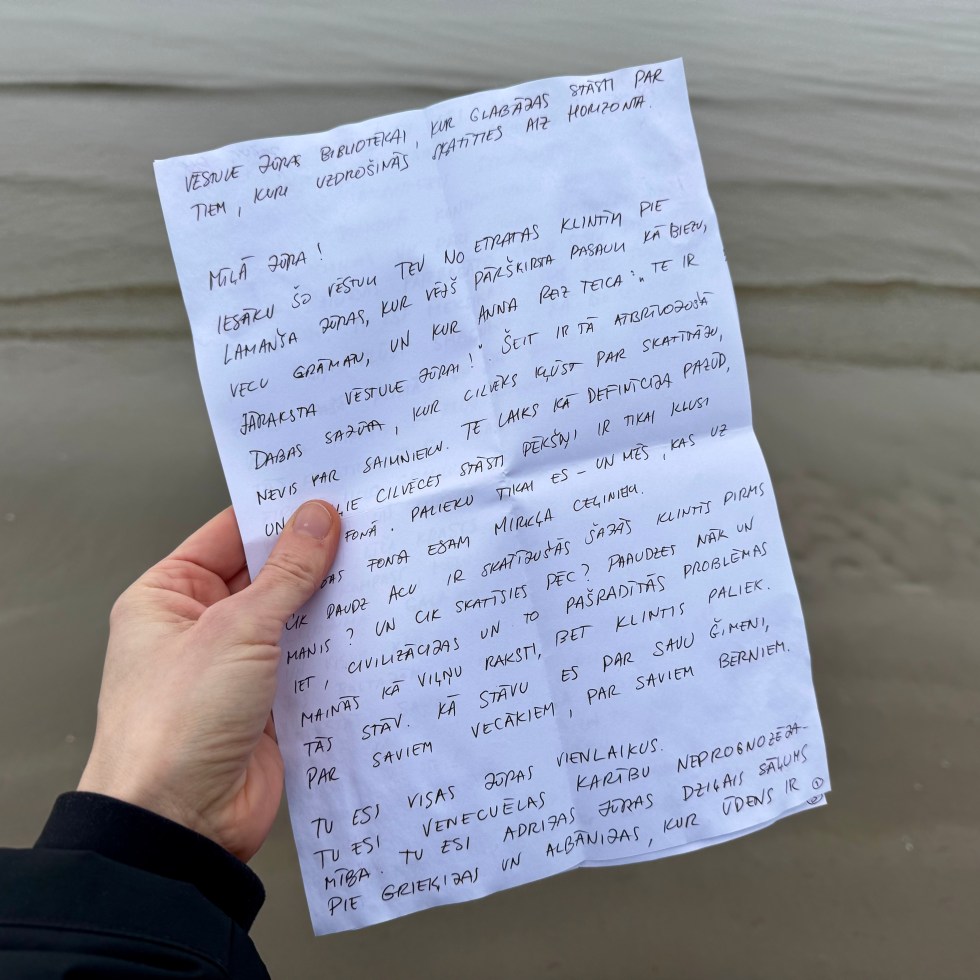 VĒSTULE JŪRAS BIBLIOTĒKAI, KUR GLABĀJAS STĀSTI PAR
TIEM, KURI UZDROŠINĀS SKATĪTIES AIZ HORIZONTA.
MĪĻĀ JŪRA!
IESĀKU ŠO VĒSTULI TEV NO ETRATAS KLINTĪM PIE
LAMANŠA JŪRAS, KUR VĒJŠ PĀRŠĶIRSTA PASAULI KĀ BIEZU,
VECU GRĀMATU, UN KUR ANNA REIZ TEICA: "TE IR
JĀRAKSTA VĒSTULE JŪRAI!". ŠEIT IR TĀ ATBRĪVOJOŠĀ
DABAS SAJŪTA, KUR CILVĒKS KĻŪST PAR SKATĪTĀJU,
NEVIS PAR SAIMNIEKU. TE LAIKS KĀ DEFINĪCIJA PAZŪD,
UN CILVĒCES STĀSTI PĒKŠŅI IR TIKAI KLUSI
FONĀ. PALIEKU TIKAI ES – UN MĒS, KAS UZ
FONA ESAM MIRKĻA CEĻINIEKI.
CIK DAUDZ ACU IR SKATĪJUŠĀS ŠAJĀS KLINTĪS PIRMS
MANIS? UN CIK SKATĪSIES PĒC? PAAUDZES NĀK UN
IET, CIVILIZĀCIJAS UN TO PAŠRADĪTĀS PROBLĒMAS
MAINĀS KĀ VIĻŅU RAKSTI, BET KLINTIS PALIEK.
TĀS STĀV. KĀ STĀVU ES PAR SAVU ĢIMENI,
PAR SAVIEM VECĀKIEM, PAR SAVIEM BĒRNIEM.
TU ESI VISAS JŪRAS VIENLAIKUS.
TU ESI VENECUĒLAS KARĪBU NEPROGNOZĒJA-
MĪBA. TU ESI ADRIJAS JŪRAS DZIĻAIS SĀĻUMS
PIE GRIEĶIJAS UN ALBĀNIJAS, KUR ŪDENS IR ①
②